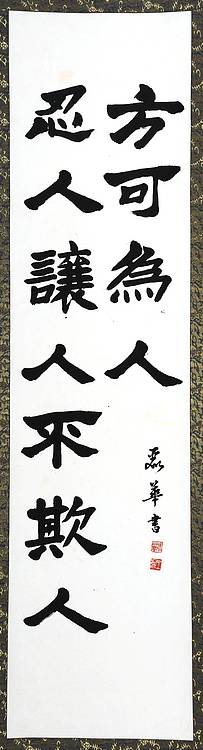 忍人讓人不欺人
方可為人
華書